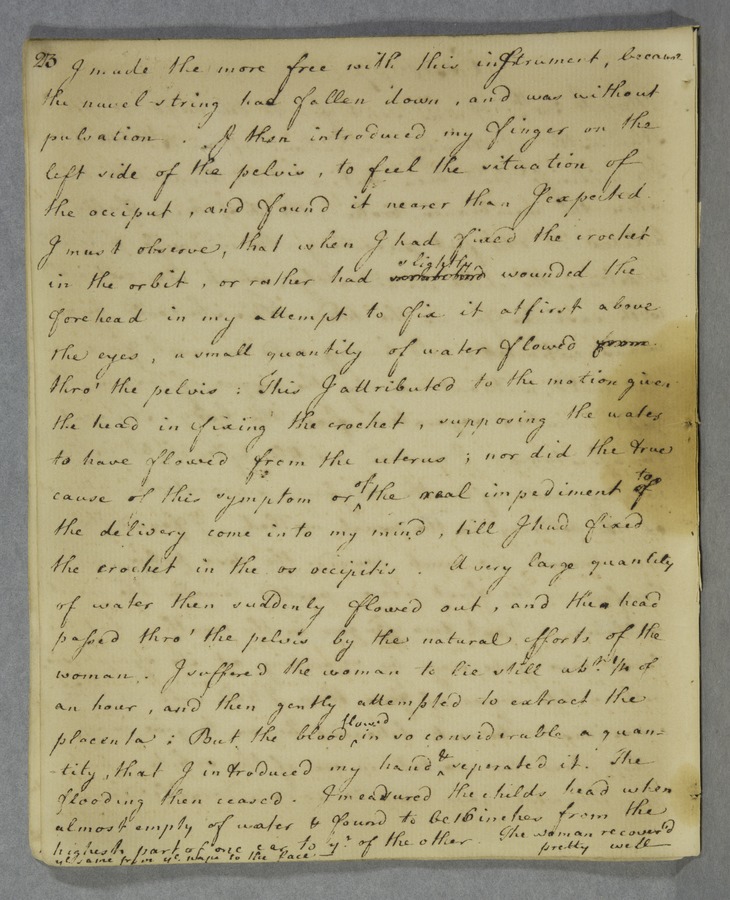 23 I made the more free with this instrument, because
the navel-string had fallen down, and was without
pulsation. I then introduced my finger on the
left side of the pelvis, to feel the situation of
the occiput, and found it nearer than I expected.
I must observe, that when I had fixed the crochet
in the orbit, or rather had slightly wounded the
forehead in my attempt to fix it at first above
the eyes, a small quantity of water flowed from
thro' the pelvis: This I attributed to the motion given
the head in fixing the crochet, supposing the water
to have flowed from the uterus; nor did the true
cause of this symptom or of the real impediment to of
the delivery come into my mind, till I had fixed
the crochet in the os occipitis. A very large quantity
of water then suddenly flowed out, and the head
passed thro' the pelvis by the natural efforts of the
woman. I suffered the woman to lie still abt. 1/4 of
an hour, and then gently attempted to extract the
placenta; But the blood flowed in so considerable a quan=
-tity, that I introduced my hand & seperated it. The
flooding then ceased. I measured the childs head when
almost empty of water & found to be 16 inches from the
highest part of one ear to yt. of the other. The woman recover'd
ye same from ye nape to the face pretty well